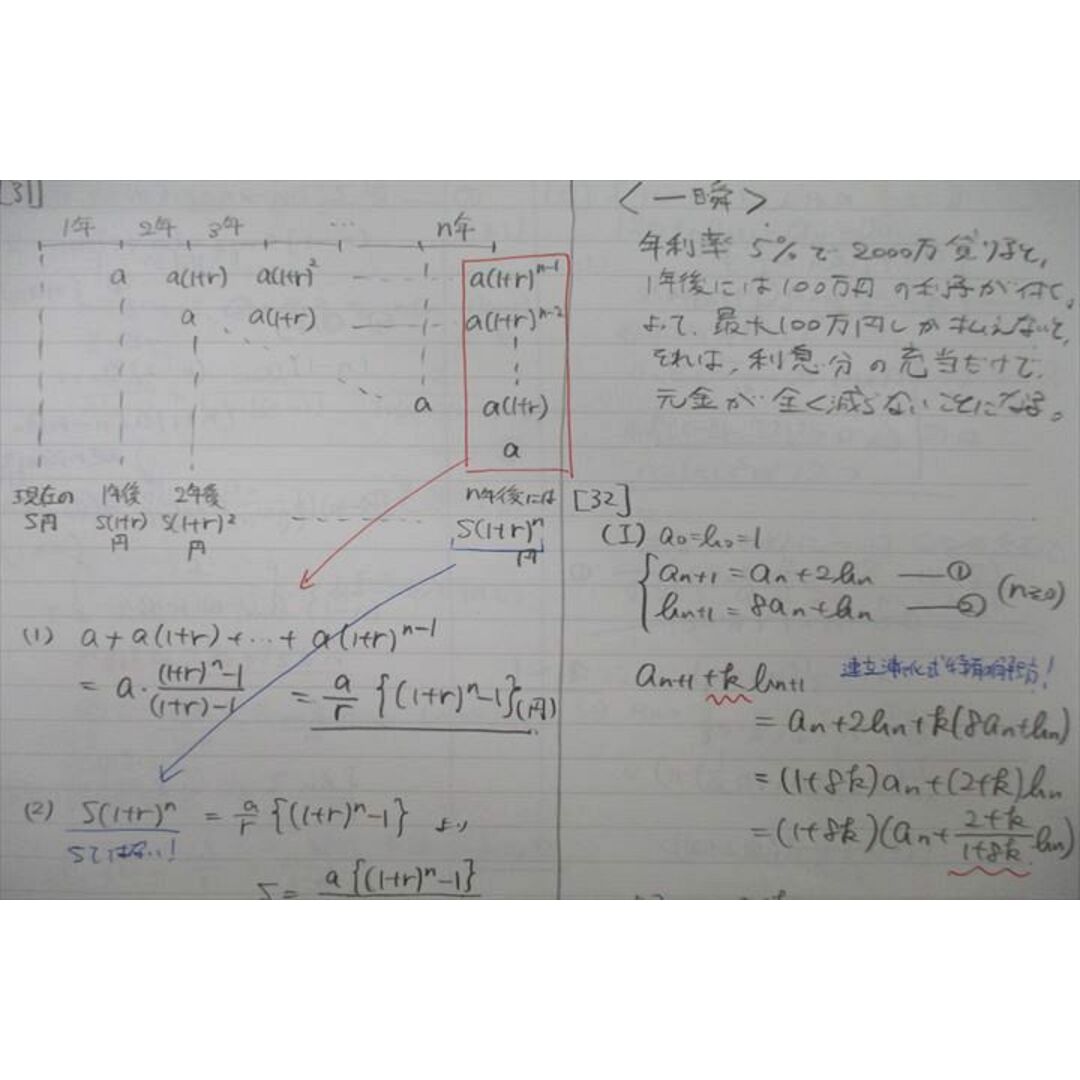 [31]
1年 2年 3年 … n年
a a(1+r) a(1+r)² a(1+r)ⁿ⁻¹
a a(1+r) a(1+r)ⁿ⁻²
a a(1+r)
a
現在の 1年後 2年後 n年後には
S円 S(1+r) S(1+r)² S(1+r)ⁿ
円 円 円
(1) a+a(1+r)+…+a(1+r)ⁿ⁻¹
= a・((1+r)ⁿ-1)/((1+r)-1) = a/r {(1+r)ⁿ-1}(円)
(2) S(1+r)ⁿ = a/r {(1+r)ⁿ-1} より
Sではない!
S= a{(1+r)ⁿ-1}
<一瞬>
年利率 5%で2000万借りると,
1年後には100万円の利子が付く。
よって、最大100万円しか払えないと,
それは,利息分の充当だけで,
元金が全く減らないことになる。
[32]
(I) a₀=b₀=1
aₙ₊₁=aₙ+2bₙ ―①
bₙ₊₁=8aₙ+bₙ ―② (n≧0)
連立漸化式
aₙ₊₁+kbₙ₊₁
=aₙ+2bₙ+k(8aₙ+bₙ)
=(1+8k)aₙ+(2+k)bₙ
=(1+8k)(aₙ+(2+k)/(1+8k) bₙ)